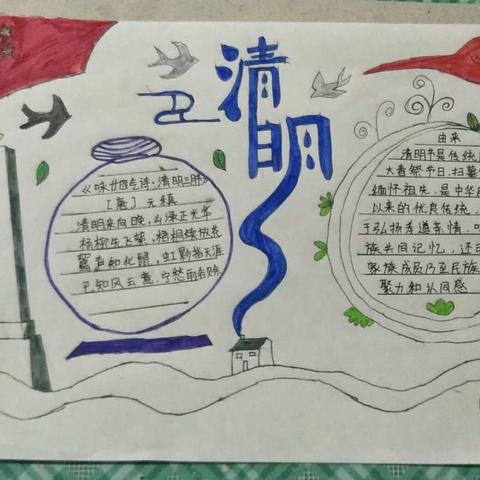 清明
《咏廿四气诗·清明三月节》
[唐] 元稹
清明来向晚，山渌正光华
杨柳先飞絮，梧桐续放花
鴽声知化鼠，虹影指天涯
已知风云意，宁愁雨谷赊
由来
清明节是传统
大春祭节日，扫墓
缅怀祖先，是中华
以来的优良传统，
于弘扬孝道亲情、
族共同记忆，还
家族成员乃至民族
聚力和认同感